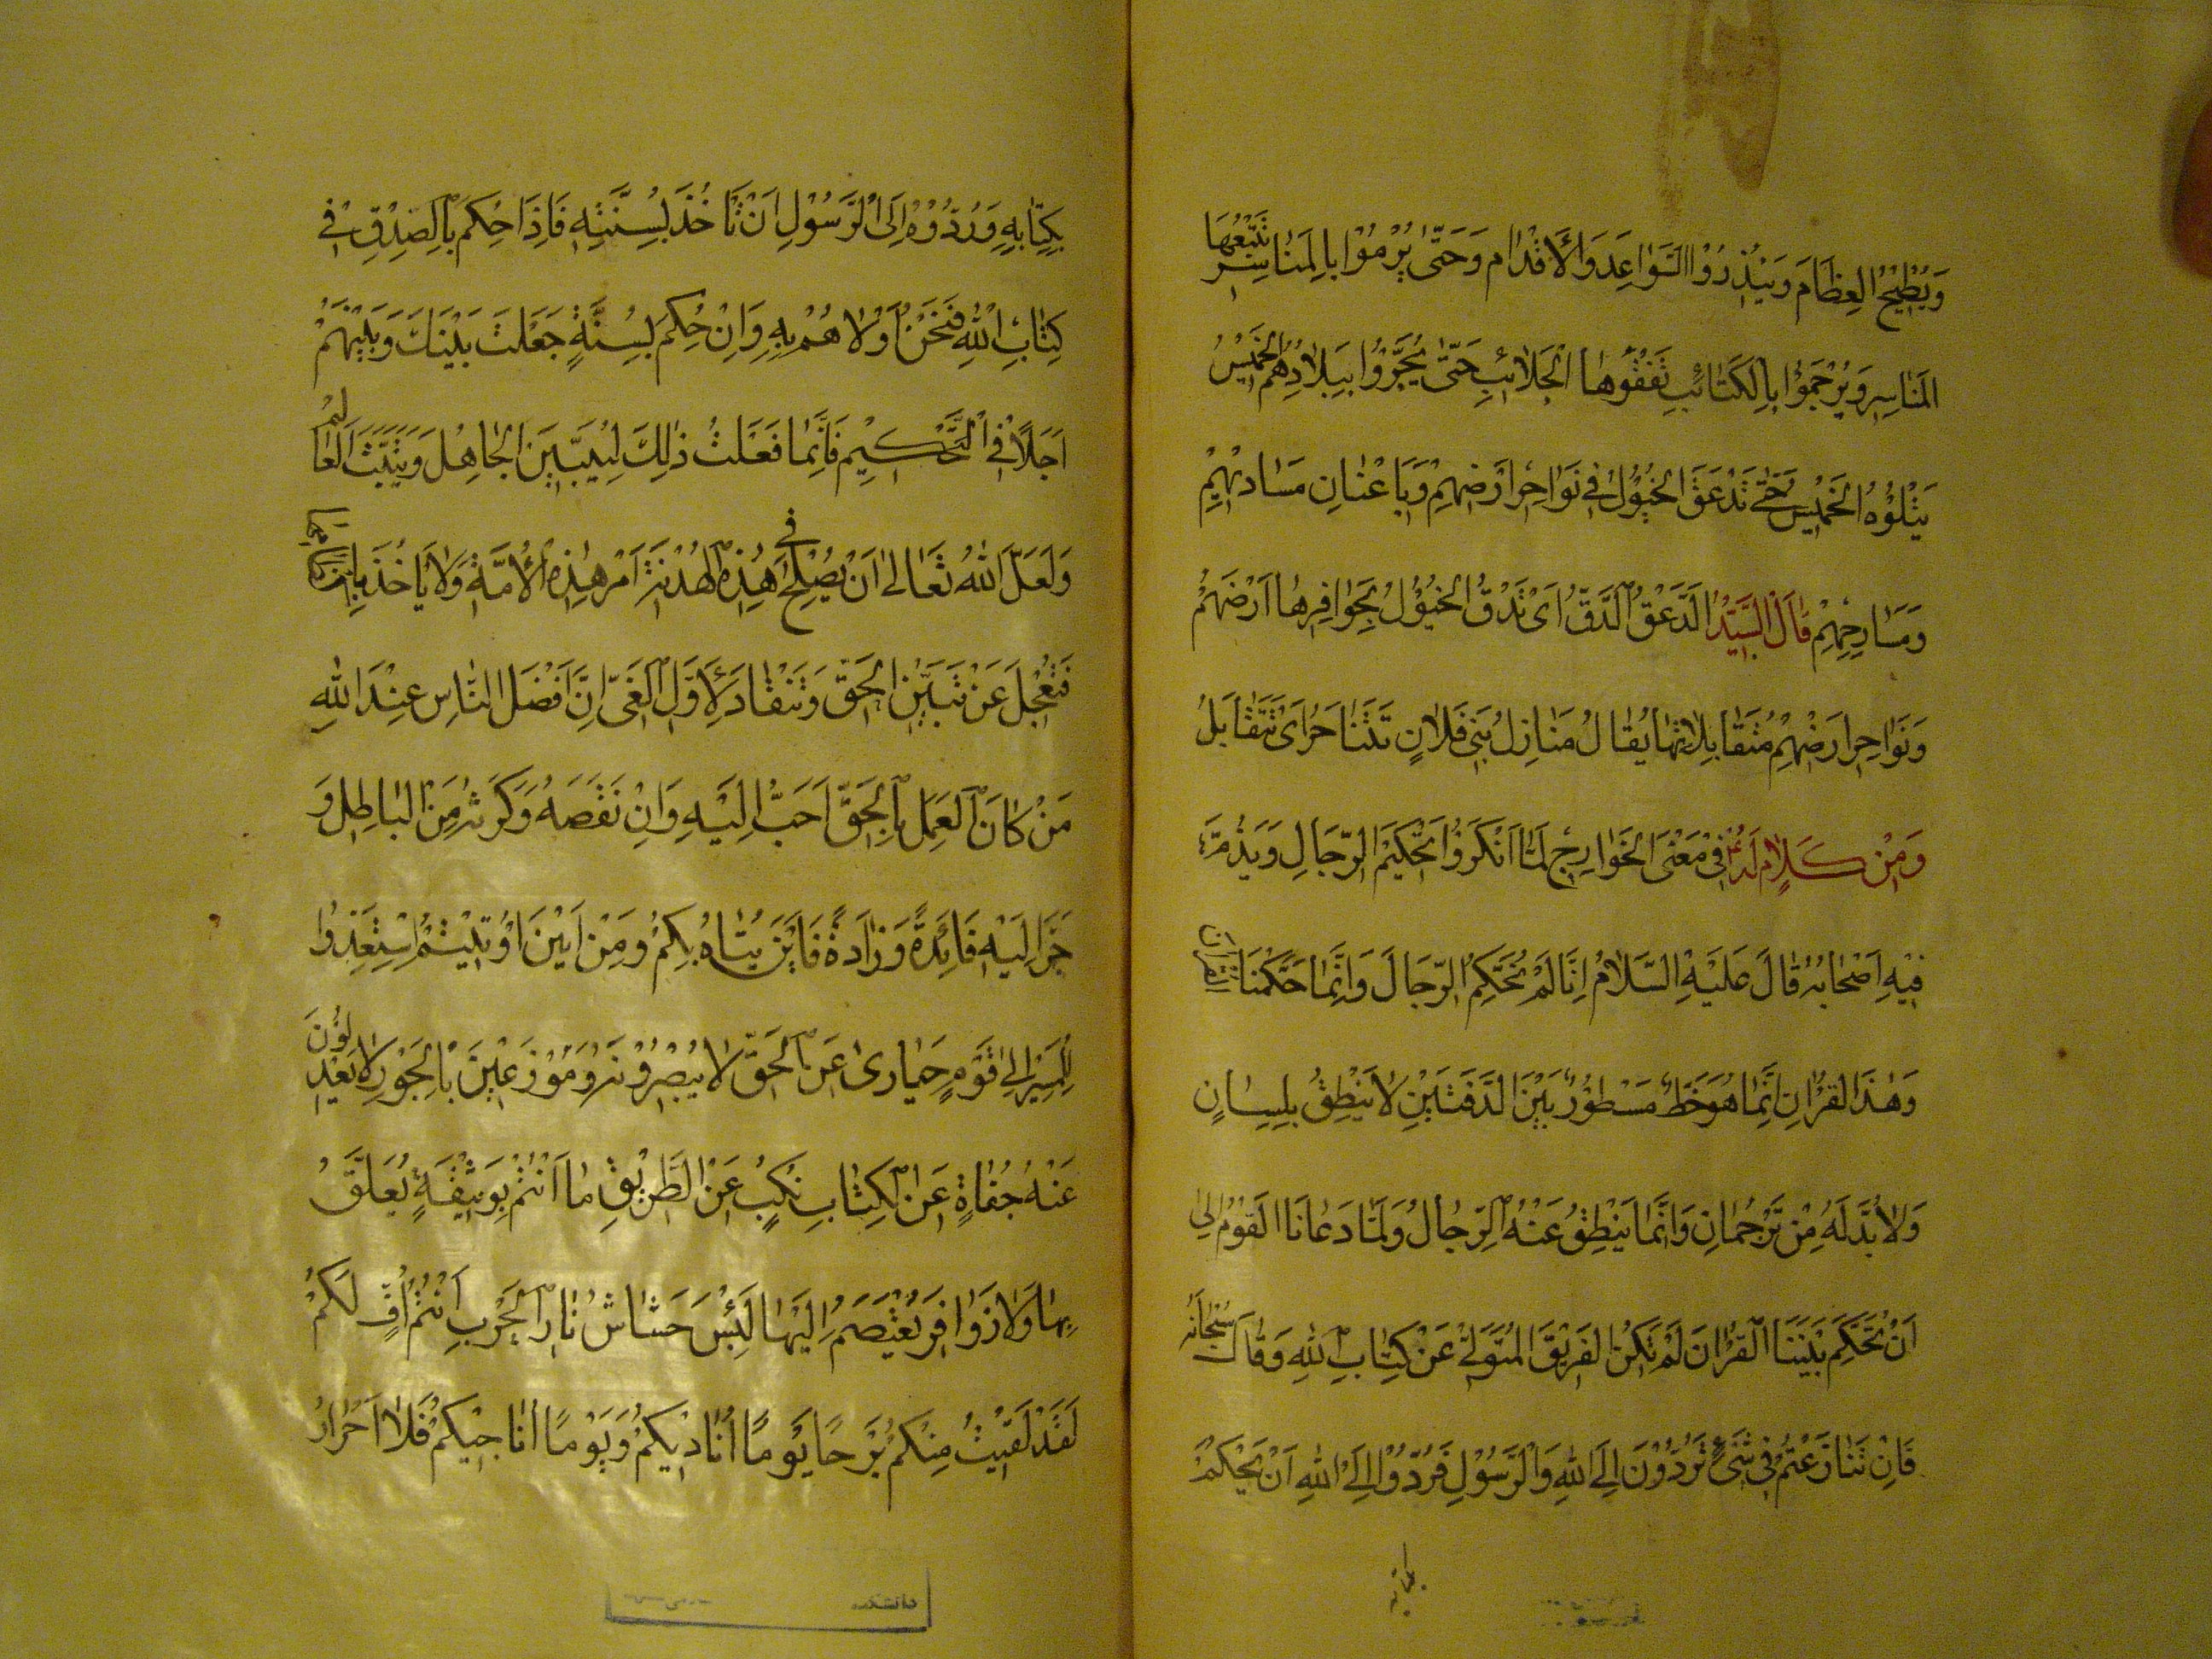 وَيُطِيْحُ الْعِظَامَ وَيُنْذِرُوا السَّوَاعِدَ وَالْأَقْدَامَ وَحَتّٰى يُرْمَوْا بِالْمَنَاسِرِ تَتْبَعُهَا
الْمَنَاسِرُ وَيُرْجَمُوْا بِالْكَتَائِبِ تَقْفُوْهَا الْجَلَائِبُ حَتّٰى يُجَرُّوْا بِبِلَادِهُمُ الْخَمِيْسُ
يَتْلُوْهُ الْخَمِيْسُ حَتّٰى تَدْعَقَ الْخُيُوْلُ فِي نَوَاحِرِ اَرْضِهِمْ وَبِاَعْنَانِ مَسَارِبِهِمْ
وَمَسَارِحِهِمْ قَالَ السَّيِّدُ الدَّعْقُ الدَّقُّ اَىْ تَدُقُّ الْخُيُوْلُ بِحَوَافِرِهَا اَرْضَهُمْ
وَنَوَاحِرِ اَرْضِهِمْ مُتَقَابِلَاتُهَا يُقَالُ مَنَازِلُ بَنِي فُلَانٍ تَتَنَاحَرُ اَىْ تَتَقَابَلُ
وَمِنْ كَلَامٍ لَهُ فِي مَعْنَى الْخَوَارِجِ لَمَّا اَنْكَرُوْا تَحْكِيْمَ الرِّجَالِ وَيَذُمُّ
فِيْهِ اَصْحَابَهُ قَالَ عَلَيْهِ السَّلَامُ اِنَّا لَمْ نُحَكِّمِ الرِّجَالَ وَاِنَّمَا حَكَّمْنَا الْقُرْاٰنَ
وَهٰذَا الْقُرْاٰنُ اِنَّمَا هُوَ خَطٌّ مَسْطُوْرٌ بَيْنَ الدَّفَّتَيْنِ لَا يَنْطِقُ بِلِسَانٍ
وَلَا بُدَّ لَهُ مِنْ تَرْجُمَانٍ وَاِنَّمَا يَنْطِقُ عَنْهُ الرِّجَالُ وَلَمَّا دَعَانَا الْقَوْمُ اِلٰى
اَنْ نُحَكِّمَ بَيْنَنَا الْقُرْاٰنَ لَمْ نَكُنِ الْفَرِيْقَ الْمُتَوَلِّيَ عَنْ كِتَابِ اللهِ وَقَالَ سُبْحَانَهُ
فَاِنْ تَنَازَعْتُمْ فِي شَيْءٍ تَرُدُّوْنَ اِلَى اللهِ وَالرَّسُوْلِ فَرُدُّوْا اِلَى اللهِ اَنْ يَحْكُمَ
بِكِتَابِهِ وَرُدُّوْهُ اِلَى الرَّسُوْلِ اَنْ نَاْخُذَ بِسُنَّتِهِ فَاِذَا حُكِمَ بِالصِّدْقِ فِي
كِتَابِ اللهِ فَنَحْنُ اَوْلَاهُمْ بِهِ وَاِنْ حُكِمَ بِسُنَّةٍ جَعَلْتَ بَيْنَكَ وَبَيْنَهُمْ
اَجَلًا فِي التَّحْكِيْمِ فَاِنَّمَا فَعَلْتُ ذٰلِكَ لِيَتَبَيَّنَ الْجَاهِلُ وَيَتَثَبَّتَ الْعَالِمُ
وَلَعَلَّ اللهَ تَعَالٰى اَنْ يُصْلِحَ فِي هٰذِهِ الْهُدْنَةِ اَمْرَ هٰذِهِ الْاُمَّةِ وَلَا يَاْخُذَ بِاَكْظَامِهَا
فَتَعْجَلَ عَنْ تَبَيُّنِ الْحَقِّ وَتَنْقَادَ لِاَوَّلِ الْغَيِّ اِنَّ اَفْضَلَ النَّاسِ عِنْدَ اللهِ
مَنْ كَانَ الْعَمَلُ بِالْحَقِّ اَحَبَّ اِلَيْهِ وَاِنْ نَقَصَهُ وَكَرَثَهُ مِنَ الْبَاطِلِ وَ
جَرَّ اِلَيْهِ فَائِدَةً وَزَادَهُ فَاَيْنَ يُتَاهُ بِكُمْ وَمِنْ اَيْنَ اُوْتِيْتُمْ اِسْتَعِدُّوْا
لِلْمَسِيْرِ اِلٰى قَوْمٍ حَيَارٰى عَنِ الْحَقِّ لَا يُبْصِرُوْنَهُ وَمُوْزَعِيْنَ بِالْجَوْرِ لَا يَعْدِلُوْنَ
عَنْهُ جُفَاةٍ عَنِ الْكِتَابِ نُكُبٍ عَنِ الطَّرِيْقِ مَا اَنْتُمْ بِوَثِيْقَةٍ يُعَلَّقُ
بِهَا وَلَا زَوَافِرَ يُعْتَصَمُ اِلَيْهَا لَبِئْسَ حُشَاشُ نَارِ الْحَرْبِ اَنْتُمْ اُفٍّ لَكُمْ
لَقَدْ لَقِيْتُ مِنْكُمْ بَرْحًا يَوْمًا اُنَادِيْكُمْ وَيَوْمًا اُنَاجِيْكُمْ فَلَا اَحْرَارُ